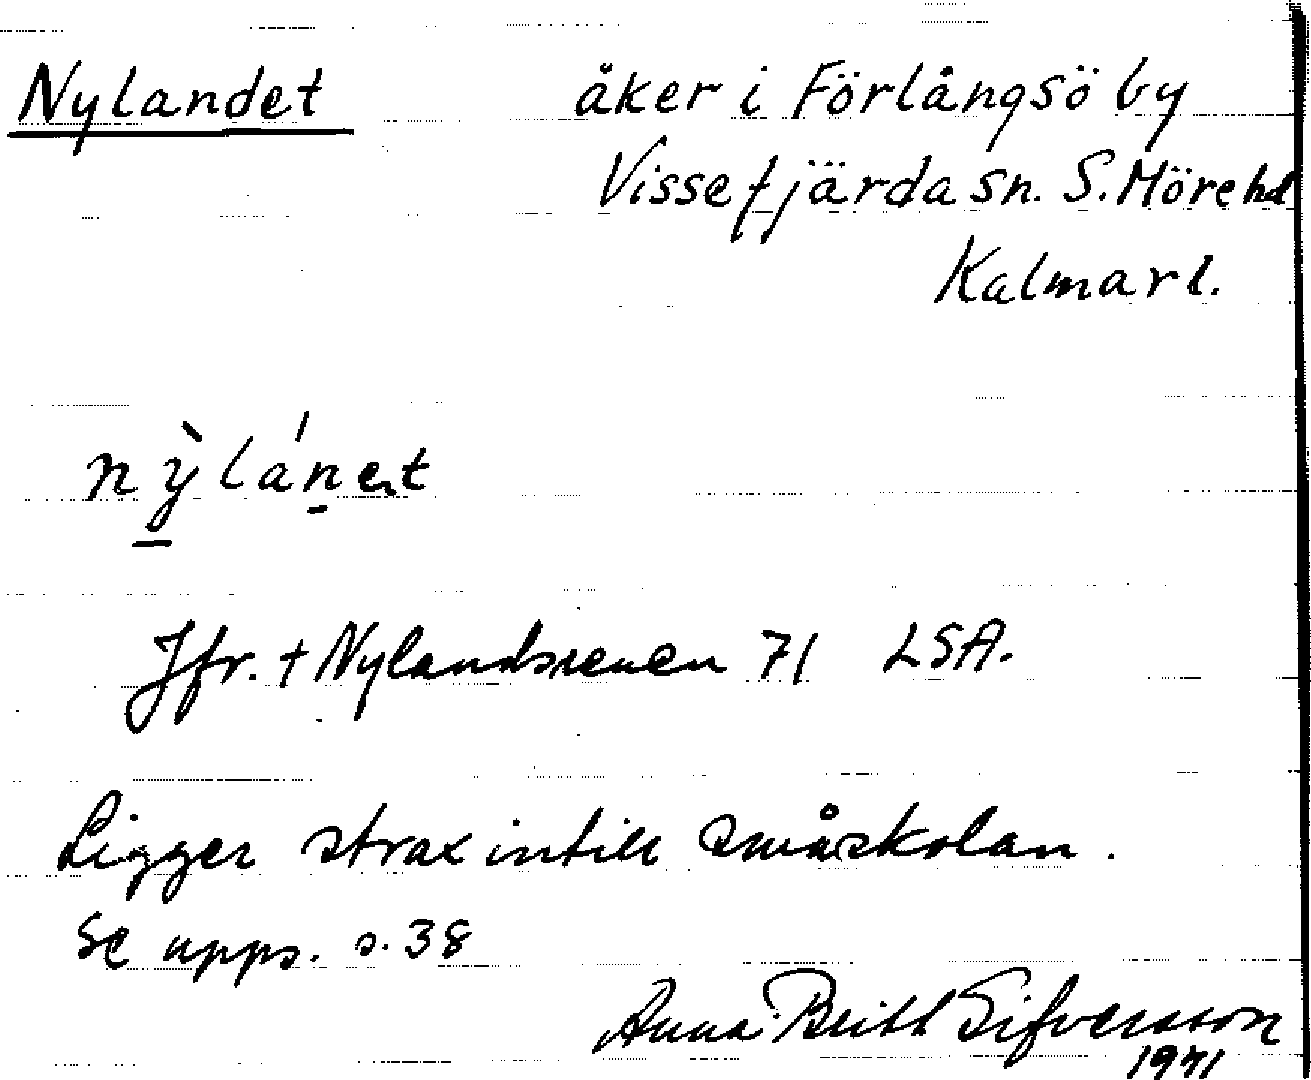 Nylandet åker i Förlångsö by
Vissefjärda sn. S. Möre hd
Kalmar l.
nỳlánet
Jfr. + Nylandsrenen 71 LSA.
Ligger strax intill småskolan.
Se upps. s. 38
Anna-Britt Sifversson
1971